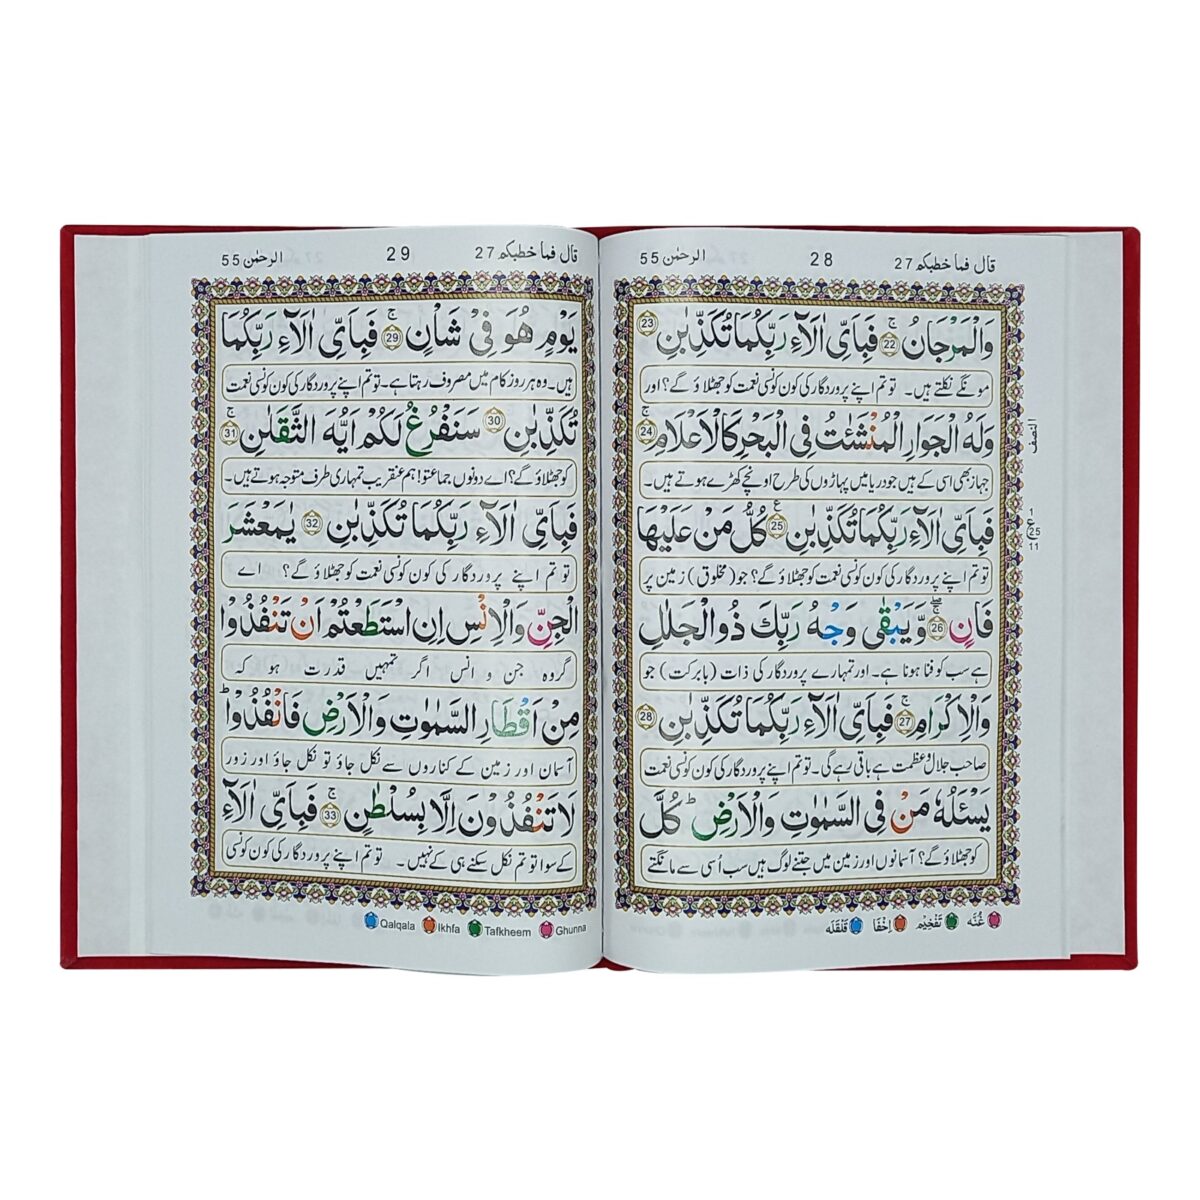 قال فما خطبكم 27
28
الرحمٰن 55
وَالْمَرْجَانُ ۚ 22 فَبِاَىِّ اٰلَآءِ رَبِّكُمَا تُكَذِّبٰنِ 23
مونگے نکلتے ہیں۔ تو تم اپنے پروردگار کی کون کونسی نعمت کو جھٹلاؤ گے؟ اور
وَلَهُ الْجَوَارِ الْمُنْشَئٰتُ فِى الْبَحْرِ كَالْاَعْلَامِ ۚ 24
جہاز بھی اسی کے ہیں جو دریا میں پہاڑوں کی طرح اونچے کھڑے ہوتے ہیں۔
فَبِاَىِّ اٰلَآءِ رَبِّكُمَا تُكَذِّبٰنِ ۧ 25 كُلُّ مَنْ عَلَيْهَا
تو تم اپنے پروردگار کی کون کونسی نعمت کو جھٹلاؤ گے؟ جو (مخلوق) زمین پر
فَانٍ ۖ 26 وَّيَبْقٰى وَجْهُ رَبِّكَ ذُو الْجَلٰلِ
ہے سب کو فنا ہونا ہے۔ اور تمہارے پروردگار کی ذات (بابرکت) جو
وَالْاِكْرَامِ ۚ 27 فَبِاَىِّ اٰلَآءِ رَبِّكُمَا تُكَذِّبٰنِ 28
صاحب جلال و عظمت ہے باقی رہے گی۔ تو تم اپنے پروردگار کی کون کونسی نعمت
يَسْـَٔلُهٗ مَنْ فِى السَّمٰوٰتِ وَالْاَرْضِ ؕ كُلَّ
کو جھٹلاؤ گے؟ آسمانوں اور زمین میں جتنے لوگ ہیں سب اُسی سے مانگتے
غُنَّه تَفْخِيْم اِخْفَا قَلْقَلَه
النصف
1
ع
25
11
قال فما خطبكم 27
29
الرحمٰن 55
يَوْمٍ هُوَ فِىْ شَاْنٍ ۚ 29 فَبِاَىِّ اٰلَآءِ رَبِّكُمَا
ہیں۔ وہ ہر روز کام میں مصروف رہتا ہے۔ تو تم اپنے پروردگار کی کون کونسی نعمت
تُكَذِّبٰنِ 30 سَنَفْرُغُ لَكُمْ اَيُّهَ الثَّقَلٰنِ ۚ 31
کو جھٹلاؤ گے؟ اے دونوں جماعتو! ہم عنقریب تمہاری طرف متوجہ ہوتے ہیں۔
فَبِاَىِّ اٰلَآءِ رَبِّكُمَا تُكَذِّبٰنِ 32 يٰمَعْشَرَ
تو تم اپنے پروردگار کی کون کونسی نعمت کو جھٹلاؤ گے؟ اے
الْجِنِّ وَالْاِنْسِ اِنِ اسْتَطَعْتُمْ اَنْ تَنْفُذُوْا
گروہ جن و انس اگر تمہیں قدرت ہو کہ
مِنْ اَقْطَارِ السَّمٰوٰتِ وَالْاَرْضِ فَانْفُذُوْا ؕ
آسمان اور زمین کے کناروں سے نکل جاؤ تو نکل جاؤ اور زور
لَا تَنْفُذُوْنَ اِلَّا بِسُلْطٰنٍ ۚ 33 فَبِاَىِّ اٰلَآءِ
کے سوا تو تم نکل سکنے ہی کے نہیں۔ تو تم اپنے پروردگار کی کون کونسی
Qalqala Ikhfa Tafkheem Ghunna